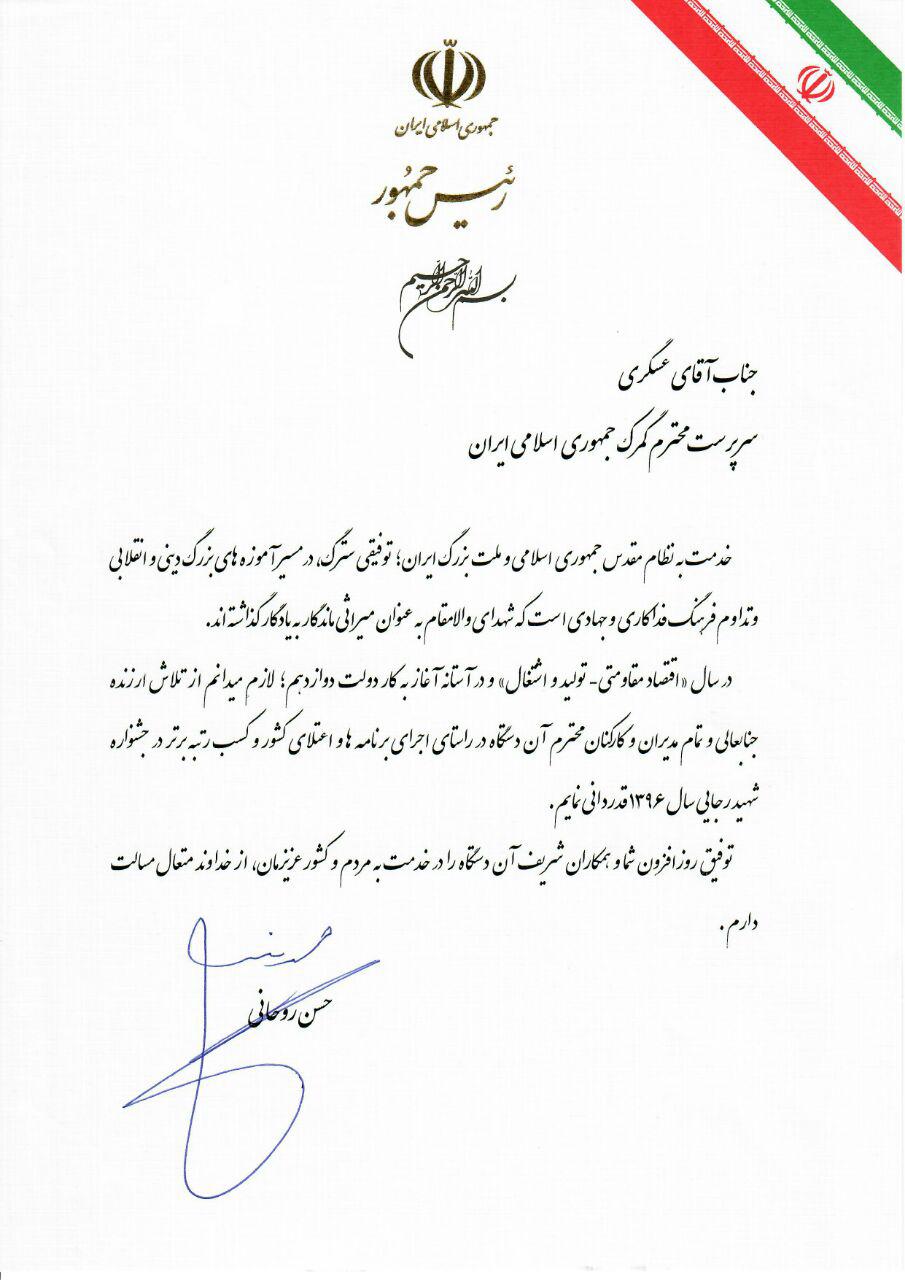 جمهوری اسلامی ایران
رئیس جمهور
بسم الله الرحمن الرحیم
جناب آقای عسکری
سرپرست محترم گمرک جمهوری اسلامی ایران
خدمت به نظام مقدس جمهوری اسلامی و ملت بزرگ ایران؛ توفیقی سترگ، در مسیر آموزه های بزرگ دینی و انقلابی
و تداوم فرهنگ فداکاری و جهادی است که شهدای والامقام به عنوان میراثی ماندگار به یادگار گذاشته اند.
در سال «اقتصاد مقاومتی- تولید و اشتغال» و در آستانه آغاز به کار دولت دوازدهم؛ لازم میدانم از تلاش ارزنده
جنابعالی و تمام مدیران و کارکنان محترم آن دستگاه در راستای اجرای برنامه ها و اعتلای کشور و کسب رتبه برتر در جشنواره
شهید رجایی سال ۱۳۹۶ قدردانی نمایم.
توفیق روزافزون شما و همکاران شریف آن دستگاه را در خدمت به مردم و کشور عزیزمان، از خداوند متعال مسالت
دارم.
حسن روحانی